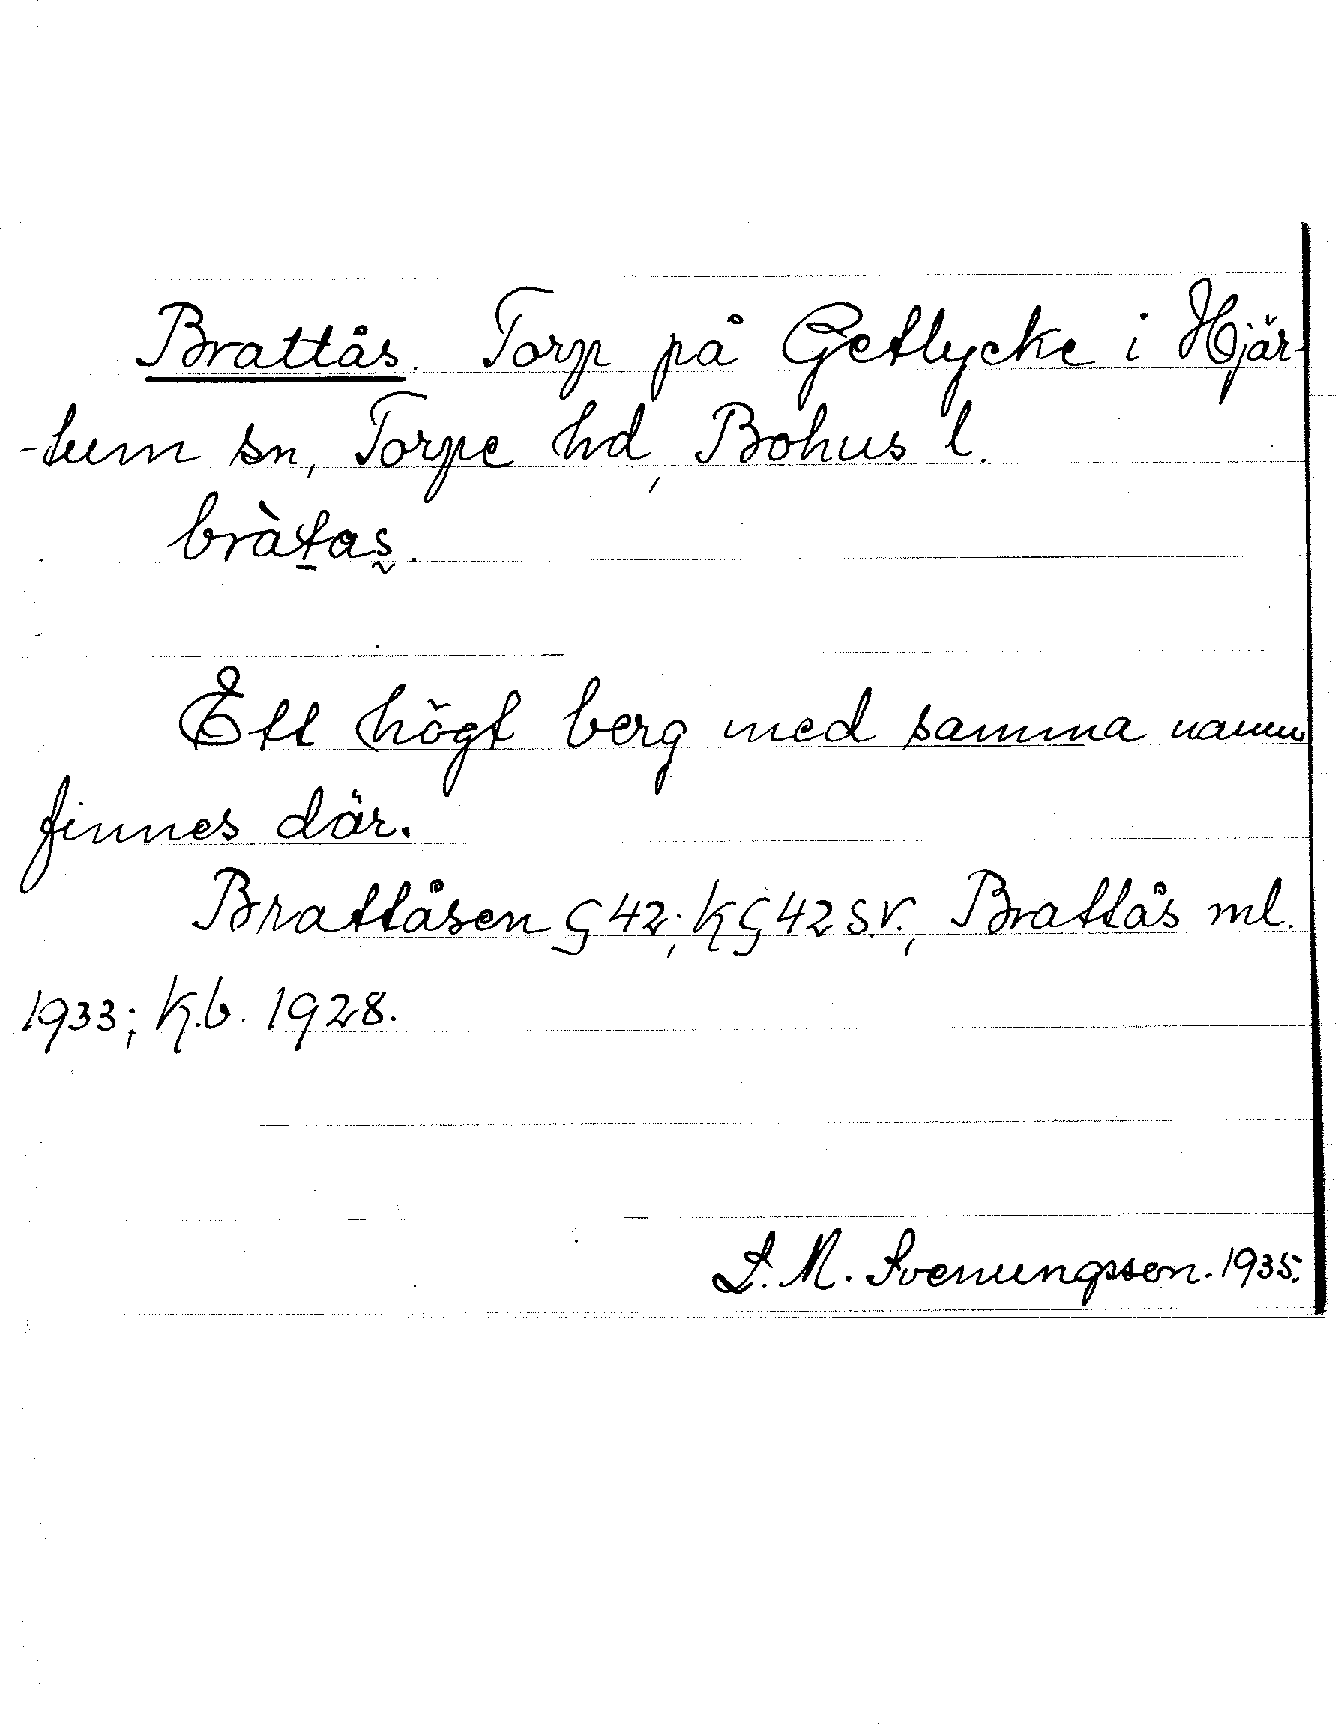 Brattås. Torp på Getlycke i Hjär-
-tum sn, Torpe hd, Bohus l.
bràtas̰.
Ett högt berg med samma namn
finnes där.
Brattåsen G 42; KG 42 S.V., Brattås ml.
1933; K.b. 1928.
S. M. Svenungsson. 1935.